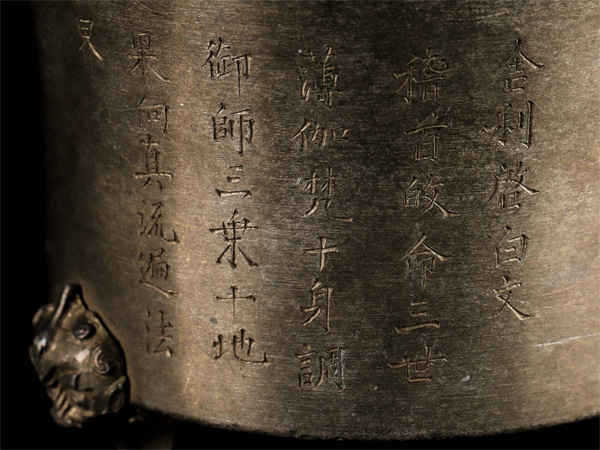 舎利啓白文
稽首皈命三世
薄伽梵十身調
御師三乗十地
果向真流遍法